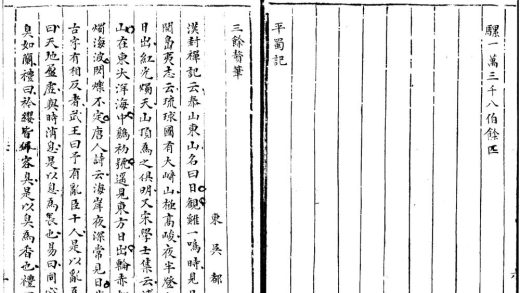 騾一萬三千八伯餘匹
平蜀記
三餘贅筆
東吳都
漢封禪記云泰山東山名曰日觀雞一鳴時見
閱島夷志云琉球國有大崎山極高峻夜半登
日出紅光燭天山頂為之俱明又宋學士集云
山在東大洋海中鷄初號遥見東方日出輪赤
燭海波閃爍不定唐人詩云海岸夜深常見日
古字有相反者武王曰予有亂臣十人是以亂
曰天地盈虛與時消息是以息為長也易曰同心
臭如蘭禮曰衿纓皆佩容臭是以臭為香也禮